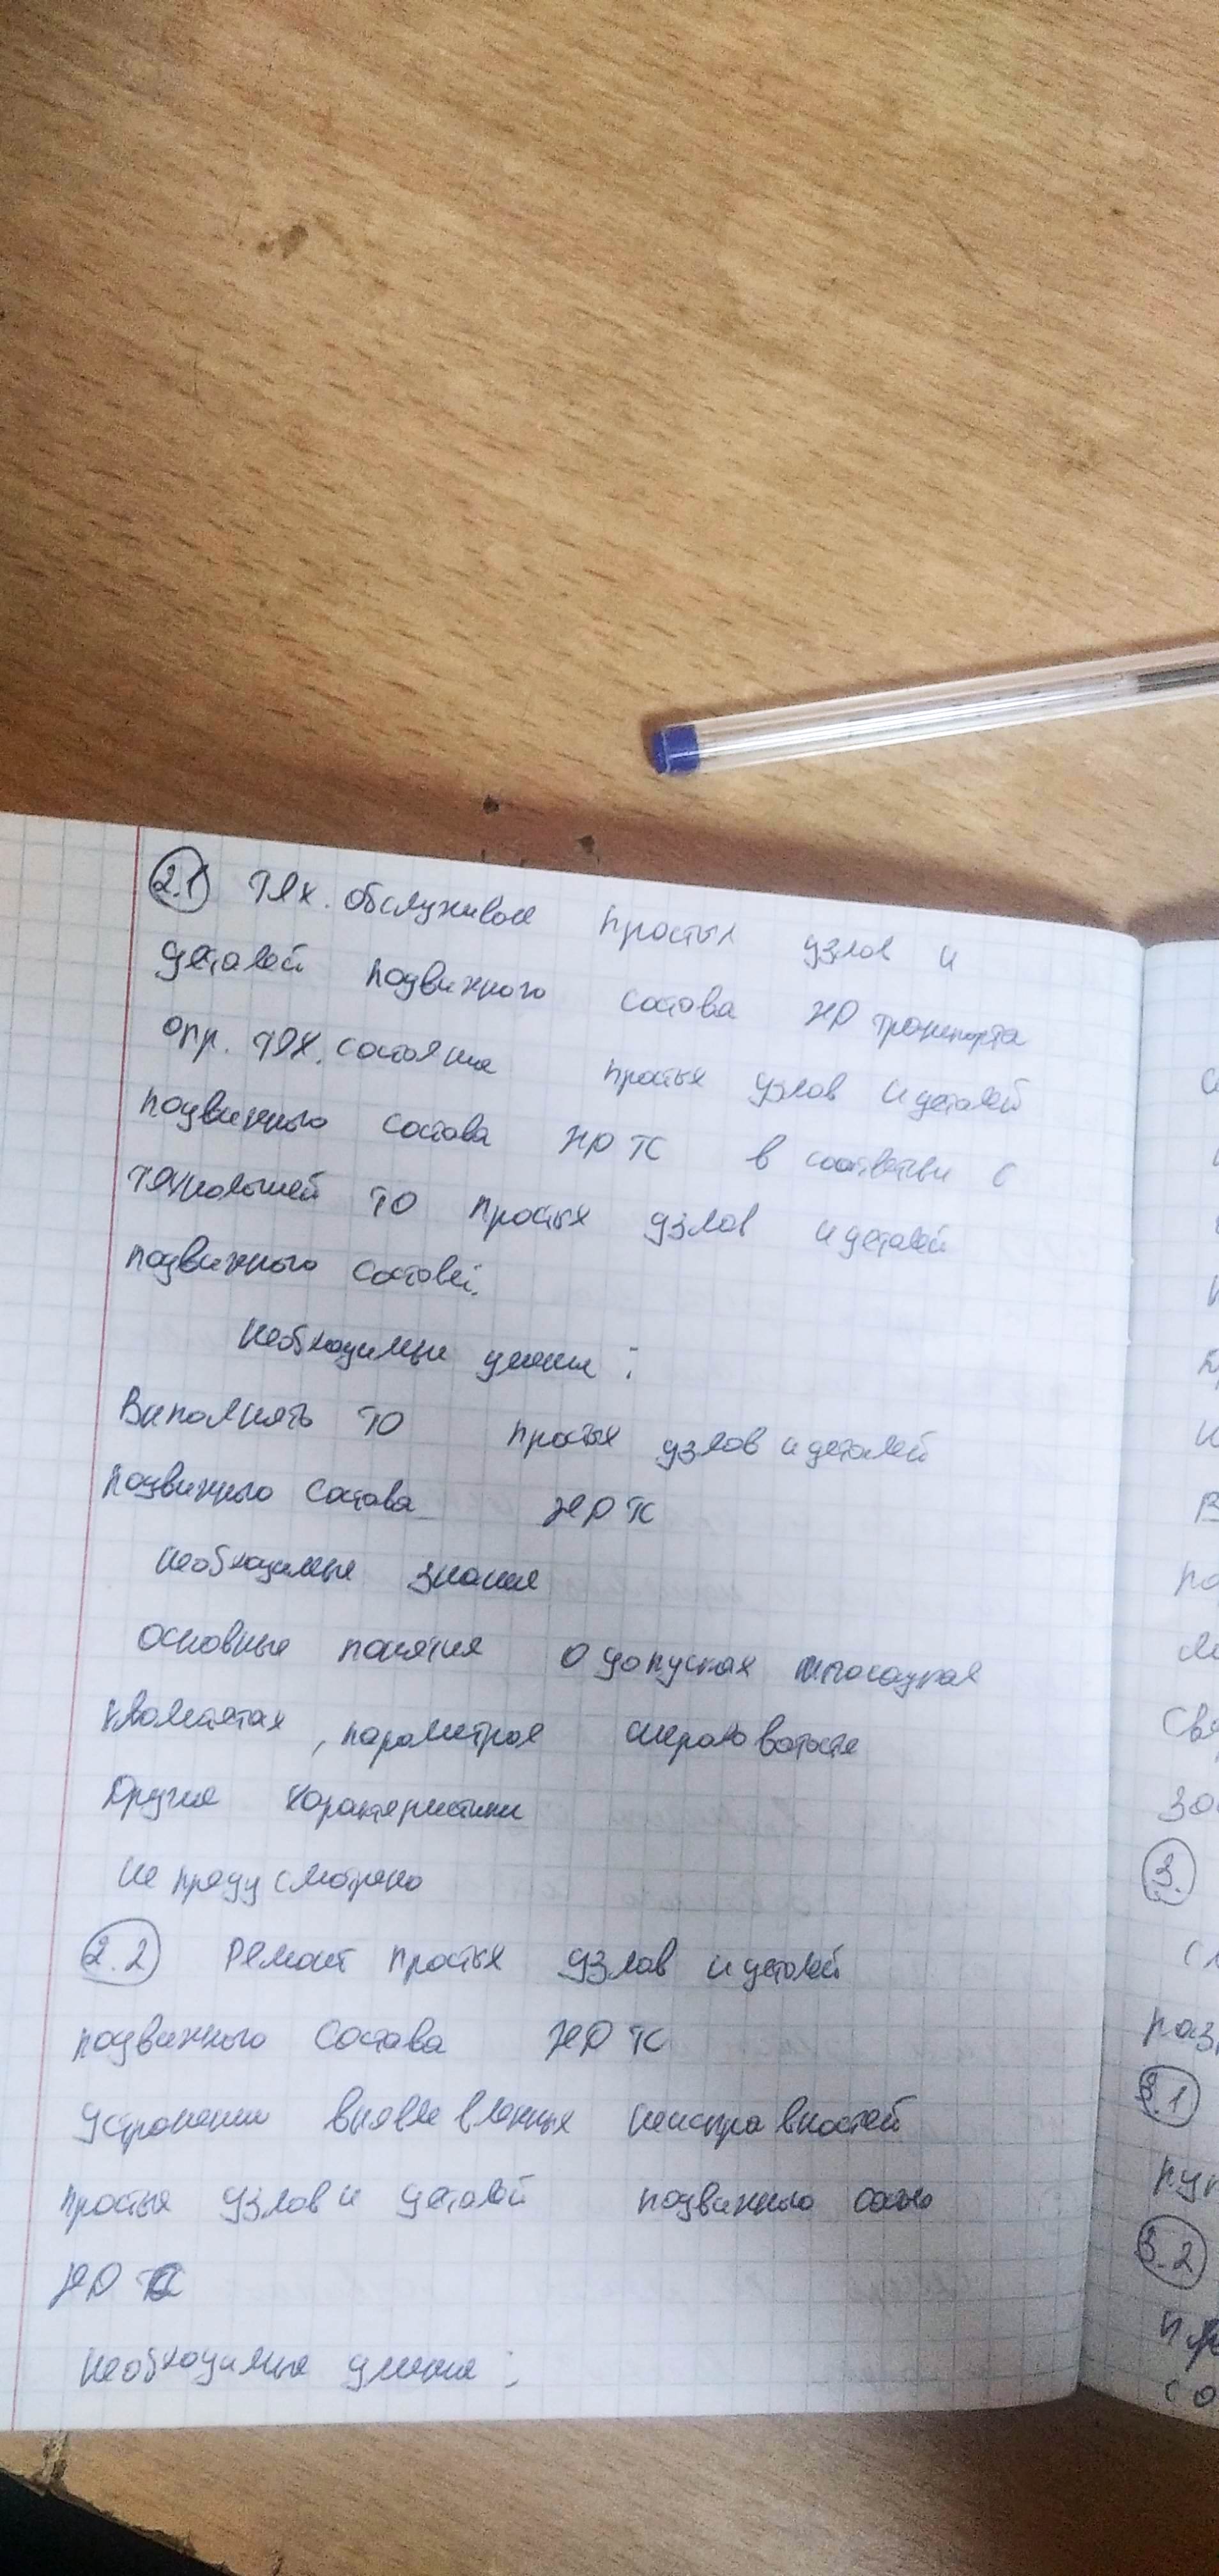 2.1 Тех. обслуживое простых узлов и
деталей подвижного состава ЖД транспорта
опр. тех. состояния простых узлов и деталей
подвижного состава ЖД ТС в соответствии с
технологией ТО простых узлов и деталей
подвижного состовей.
Необходимые умения :
Выполнять ТО простых узлов и деталей
подвижного состава ЖД ТС
Необходимые знания
Основные понятия о допусках посадках
квалитетах, параметрах шероховатости
Другие характеристики
не предусмотрено
2.2 Ремонт простых узлов и деталей
подвижного состава ЖД ТС
Устронении выявленных неисправностей
простых узлов и деталей подвижного
ЖД ТС
Необходимые умения :
3.
раз
3.1
3.2